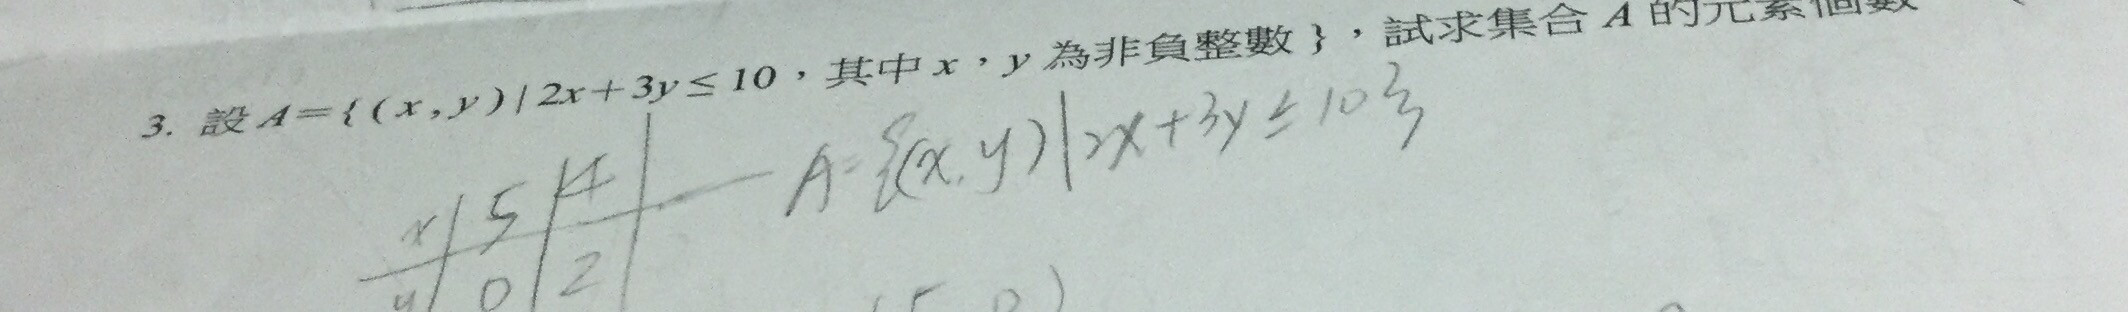 3. 設 A={(x,y)|2x+3y≤10,其中 x,y 為非負整數},試求集合 A 的元素個數
A={(x,y)|2x+3y≤10}
x|5|4|
y|0|2|
(5,0)